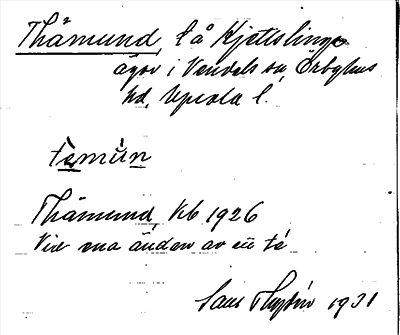 Thämund, t å Kjettslinge
ägor i Vendels sn, Örbyhus
hd, Upsala l.
tèmún
Thämund, Kb 1926
Vid ena ändan av en té
1931